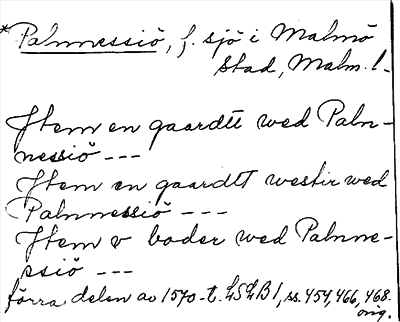 *Palnnessiö, f. sjö i Malmö
stad, Malm. l.
Jtem en gaardtt wed Paln-
nessiö ---
Jtem en gaardtt westir wed
Palnnessiö ---
Jtem v boder wed Palnne-
ssiö ---
förra delen av 1570-t. LSLB 1, ss. 454, 466, 468.
orig.